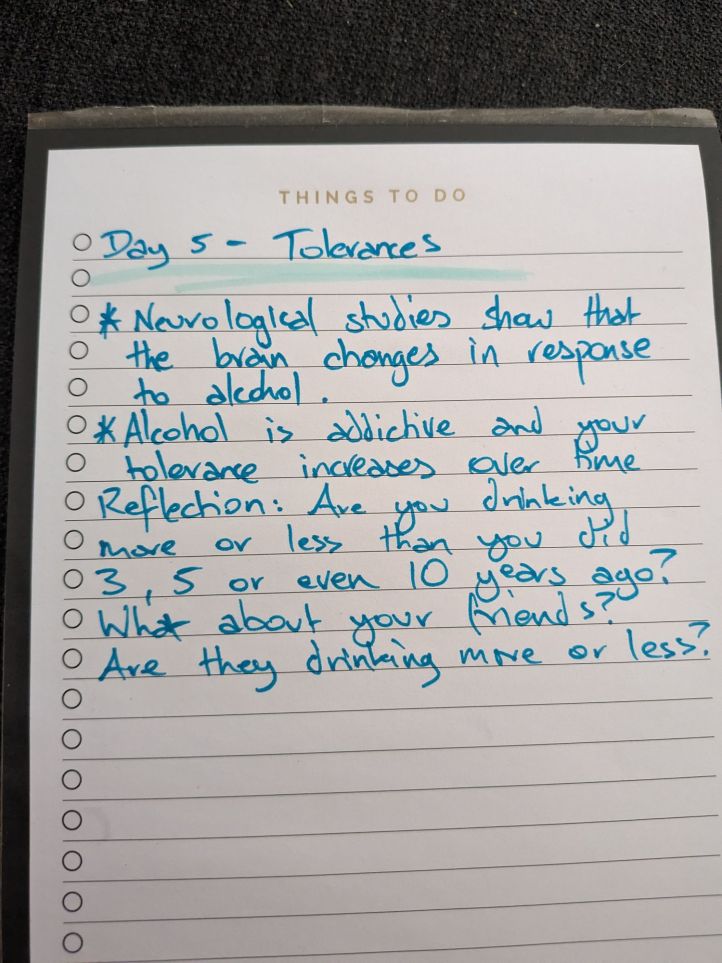 THINGS TO DO
Day 5 - Tolerances
* Neurological studies show that
the brain changes in response
to alcohol.
* Alcohol is addictive and your
tolerance increases over time
Reflection: Are you drinking
more or less than you did
3, 5 or even 10 years ago?
What about your friends?
Are they drinking more or less?